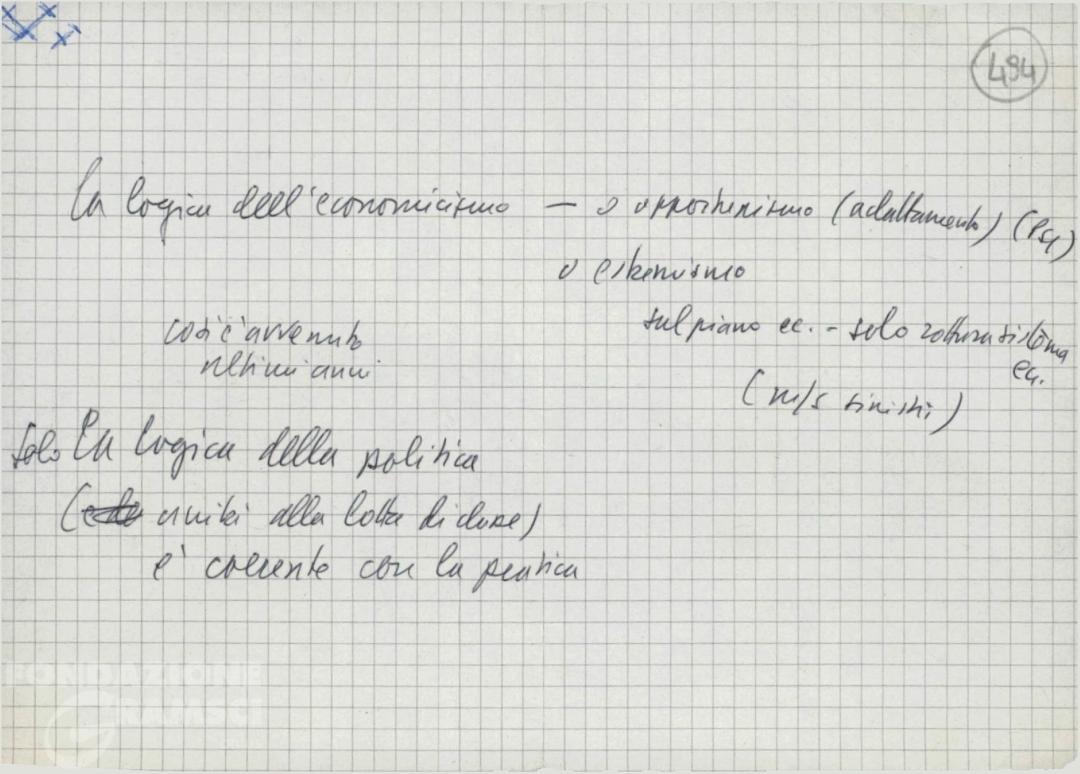 494
La logica dell'economicismo — o opportunismo (adattamento) (Psi)
o estremismo
sul piano ec. - solo rottura sistema
ec.
così è avvenuto
ultimi anni
(m/s sinistri)
Solo La logica della politica
( uniti alla lotta di classe)
è coerente con la pratica
FONDAZIONE
GRAMSCI